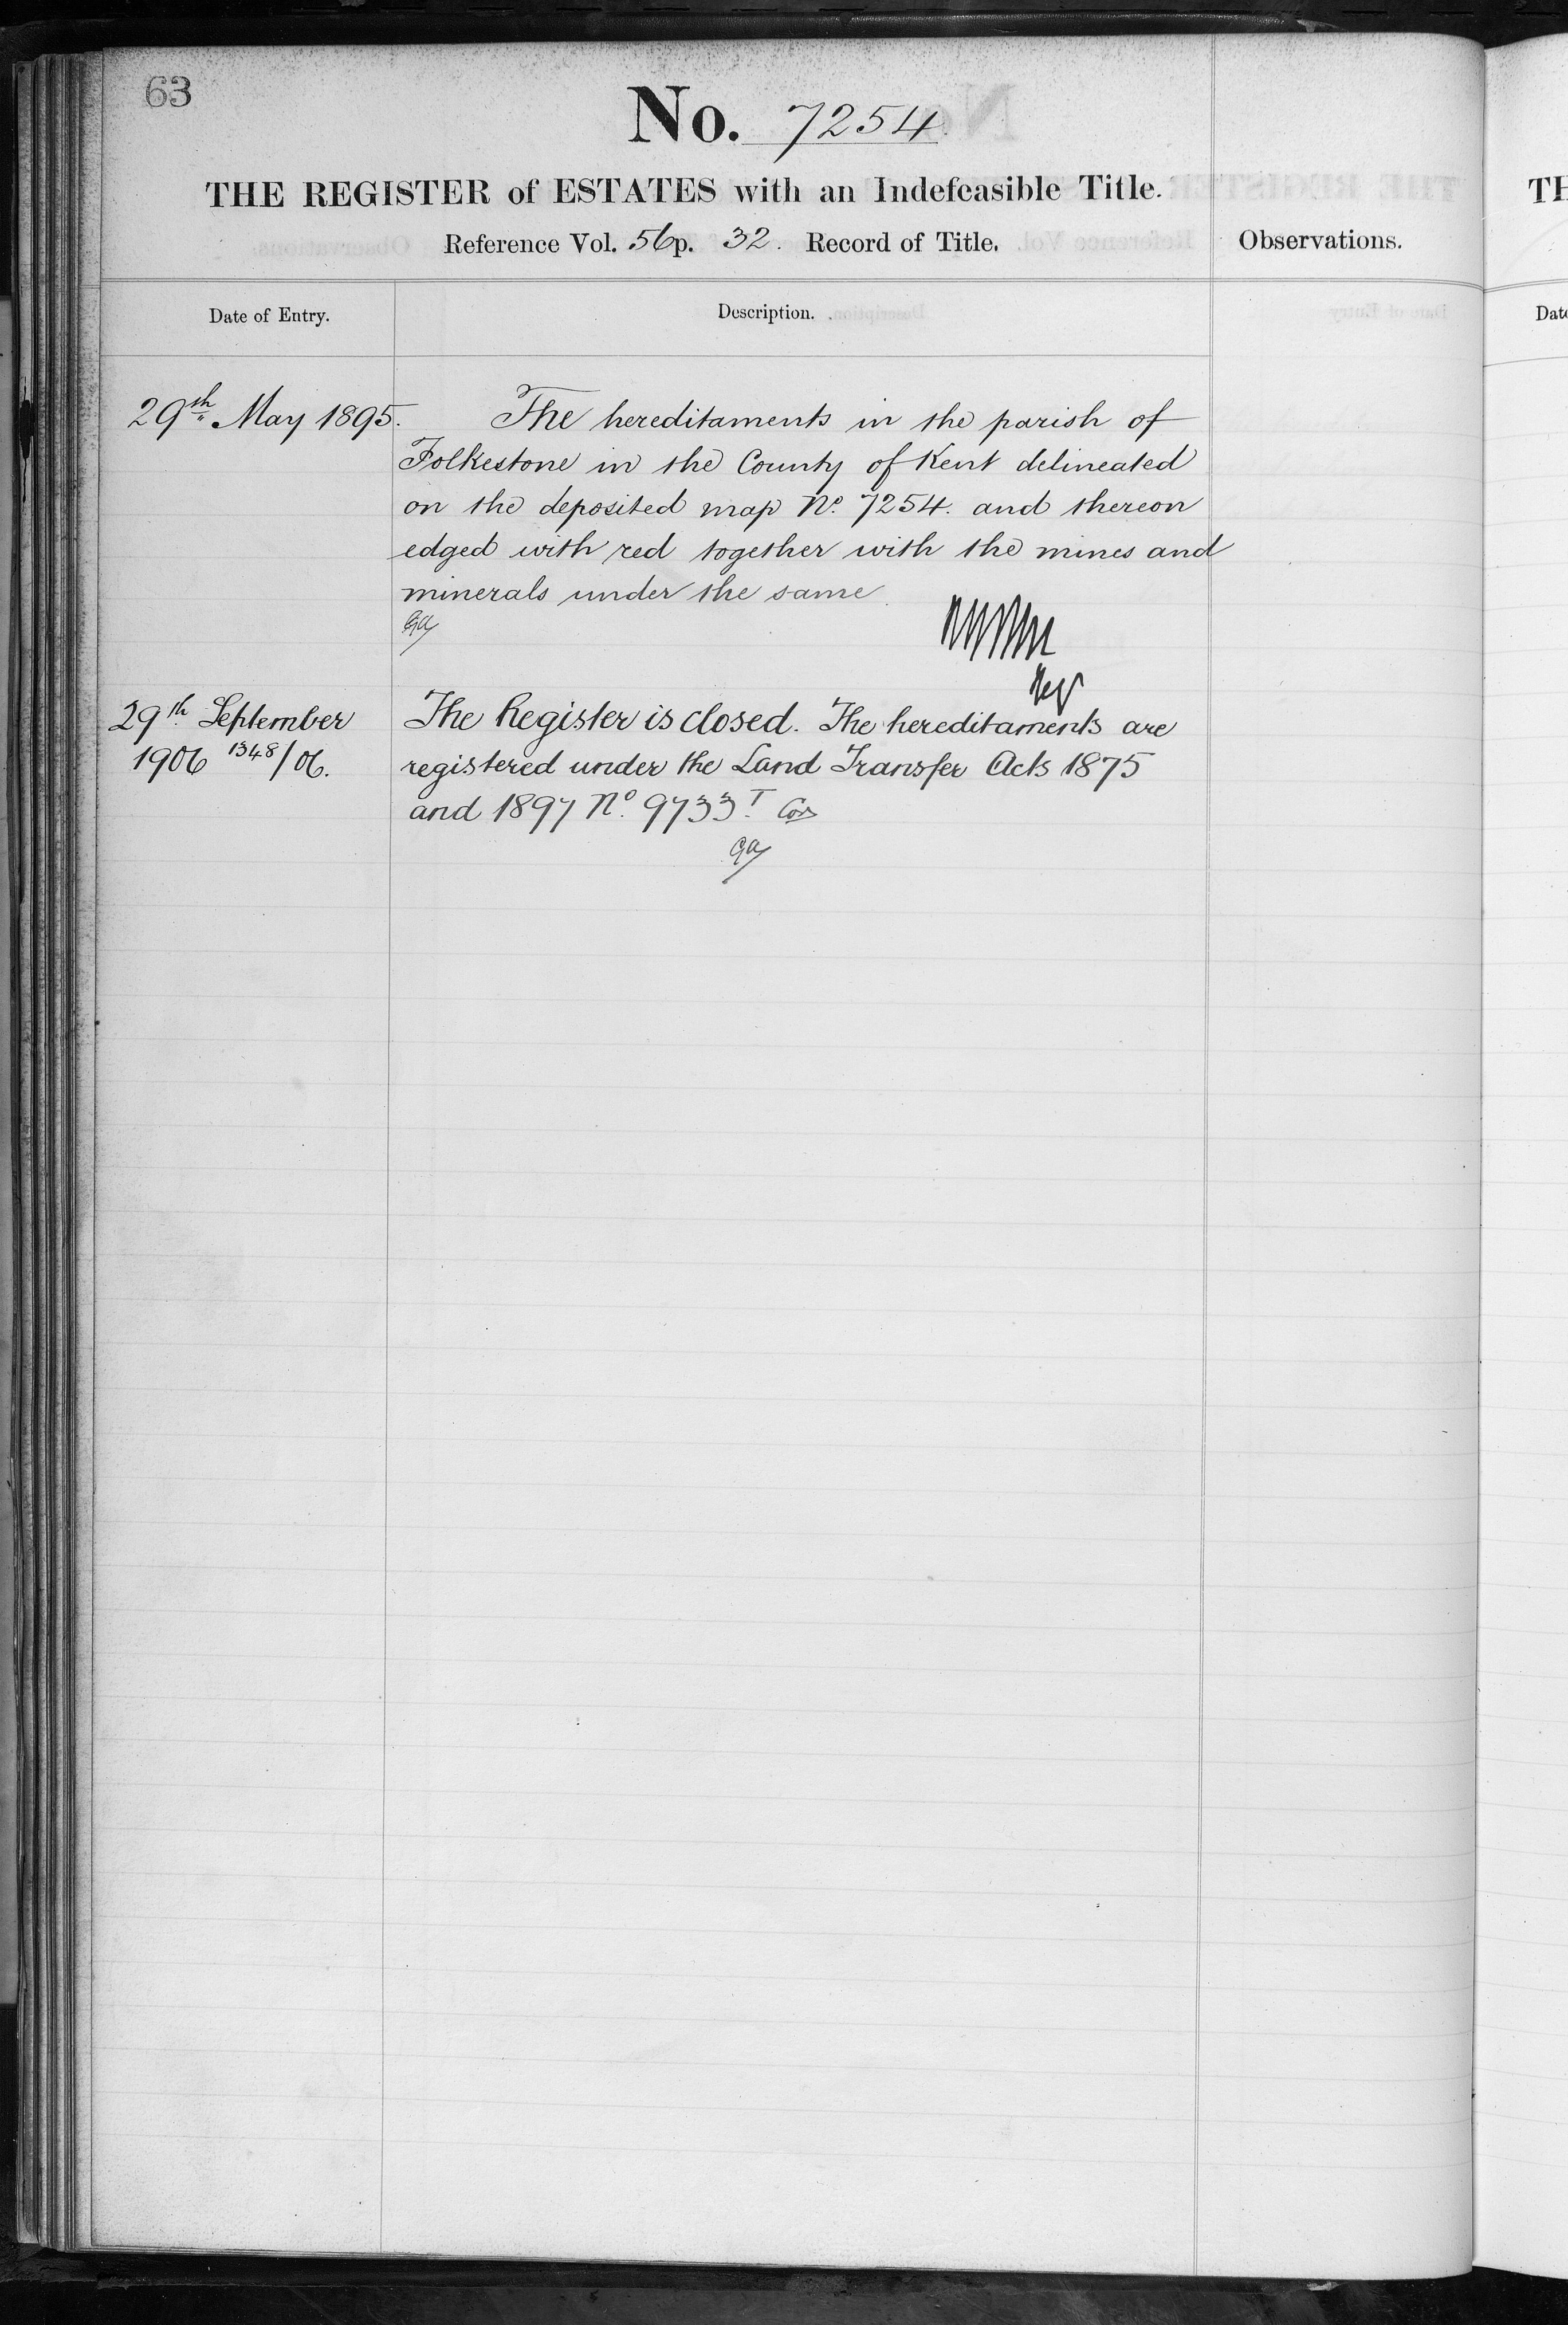 63
No. 7254
THE REGISTER of ESTATES with an Indefeasible Title.
Reference Vol. 56 p. 32. Record of Title.
Observations.
Date of Entry.
Description.
29th May 1895.
The hereditaments in the parish of
Folkestone in the County of Kent delineated
on the deposited map No. 7254. and thereon
edged with red together with the mines and
minerals under the same.
GA
Regr
29th September
1906 1348/06.
The Register is closed. The hereditaments are
registered under the Land Transfer Acts 1875
and 1897 No. 9733T.
GA
TH
Date